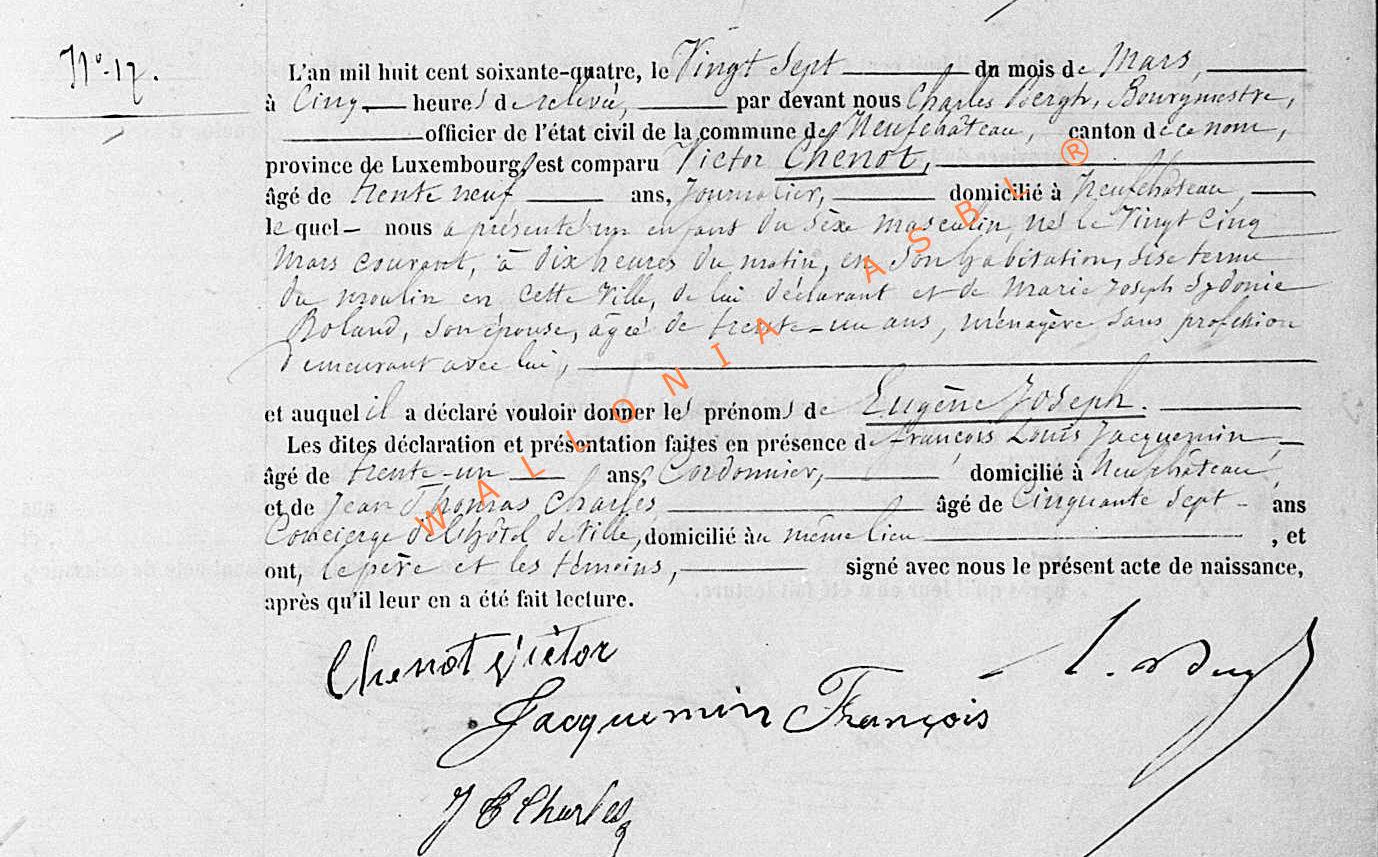 N.° 17.
L'an mil huit cent soixante-quatre, le Vingt Sept du mois de Mars,
à Cinq heures de relevée, par devant nous Charles Bergh, Bourgmestre,
officier de l'état civil de la commune de Neufchâteau, canton de ce nom,
province de Luxembourg, est comparu Victor Chenot,
âgé de trente neuf ans, Journalier, domicilié à Neufchâteau,
lequel nous a présenté un enfant du sèxe masculin, né le Vingt Cinq
Mars courant, à dix heures du matin, en son habitation, sise terme
du moulin en cette Ville, de lui déclarant et de Marie Joseph Sydonie
Roland, son épouse, âgée de trente-un ans, ménagère sans profession
demeurant avec lui,
et auquel il a déclaré vouloir donner les prénoms de Eugène Joseph.
Les dites déclaration et présentation faites en présence de françois Louis Jacquemin,
âgé de trente-un ans, Cordonnier, domicilié à Neufchâteau,
et de Jean Thomas Charles âgé de Cinquante Sept ans
Concierge de l'hôtel de Ville, domicilié au même lieu , et
ont, le père et les témoins, signé avec nous le présent acte de naissance,
après qu'il leur en a été fait lecture.
Chenot Victor
Jacquemin François
J T Charles
WALLONIA ASBL ®